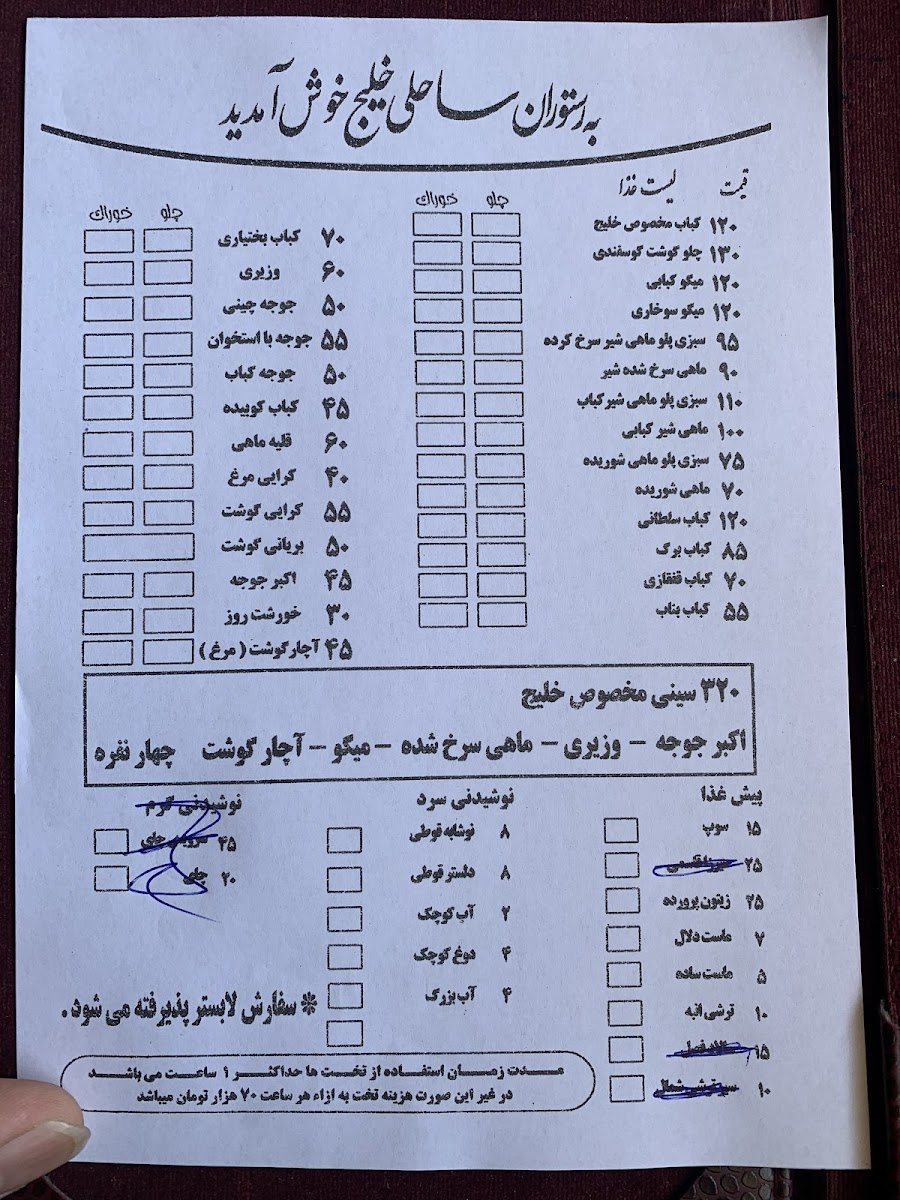 به رستوران ساحلی خلیج خوش آمدید
قیمت لیست غذا
چلو خوراک
۱۲۰ کباب مخصوص خلیج
۱۳۰ چلو گوشت گوسفندی
۱۲۰ میگو کبابی
۱۲۰ میگو سوخاری
۹۵ سبزی پلو ماهی شیر سرخ کرده
۹۰ ماهی سرخ شده شیر
۱۱۰ سبزی پلو ماهی شیر کباب
۱۰۰ ماهی شیر کبابی
۷۵ سبزی پلو ماهی شوریده
۷۰ ماهی شوریده
۱۲۰ کباب سلطانی
۸۵ کباب برک
۷۰ کباب قفقازی
۵۵ کباب بناب
چلو خوراک
۷۰ کباب بختیاری
۶۰ وزیری
۵۰ جوجه چینی
۵۵ جوجه با استخوان
۵۰ جوجه کباب
۴۵ کباب کوبیده
۶۰ قلیه ماهی
۴۰ کرایی مرغ
۵۵ کرایی گوشت
۵۰ بریانی گوشت
۴۵ اکبر جوجه
۳۰ خورشت روز
۴۵ آچار گوشت ( مرغ )
۳۲۰ سینی مخصوص خلیج
اکبر جوجه – وزیری – ماهی سرخ شده – میگو – آچار گوشت چهار نفره
پیش غذا
۱۵ سوپ
۲۵ میرزا قاسمی
۲۵ زیتون پرورده
۷ ماست دلال
۵ ماست ساده
۱۰ ترشی انبه
۱۵ سالاد فصل
۱۰
نوشیدنی سرد
۸ نوشابه قوطی
۸ دلستر قوطی
۲ آب کوچک
۴ دوغ کوچک
۴ آب بزرگ
نوشیدنی گرم
۴۵ سرویس چای
۲۰ چای
* سفارش لابستر پذیرفته می شود .
مدت زمان استفاده از تخت ها حداکثر ۱ ساعت می باشد
در غیر این صورت هزینه تخت به ازاء هر ساعت ۷۰ هزار تومان میباشد